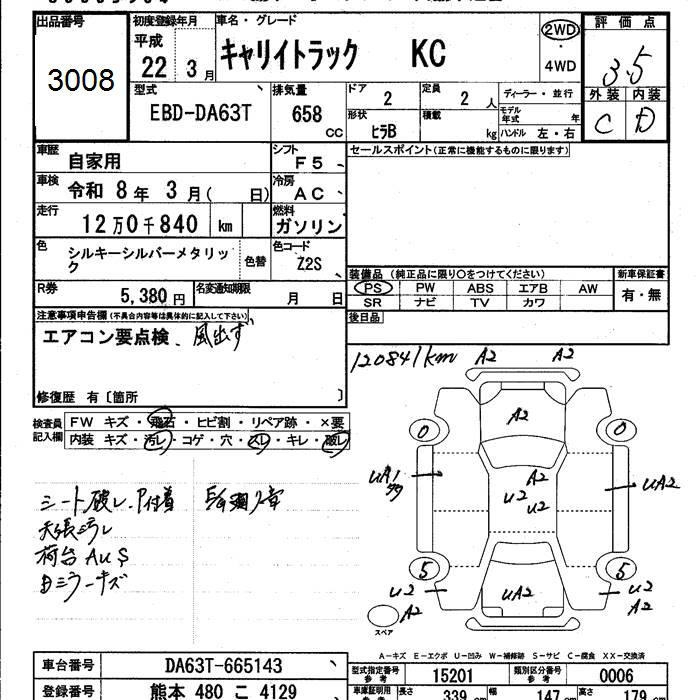 出品番号 初度登録年月 車名・グレード 2WD 評価点
3008 平成 22年 3月 キャリイトラック KC 4WD 3.5
型式 EBD-DA63T 排気量 658 CC ドア 2 定員 2人 ディーラー・並行 外装 内装
形状 ヒラB 積載 kg モデル年式 年 ハンドル 左・右 C D
車歴 自家用 シフト F5 セールスポイント(正常に機能するものに限ります)
車検 令和 8年 3月( 日) 冷房 AC
走行 12万0千840 km 燃料 ガソリン
色 シルキーシルバーメタリック 色替 色コード Z2S 装備品(純正品に限り○をつけてください) 新車保証書
R券 5,380円 名変通知期限 月 日 PS PW ABS エアB AW 有・無
SR ナビ TV カワ
注意事項申告欄(不具合内容等は具体的に記入して下さい) 後日品
エアコン要点検、風出ず
修復歴 有〔箇所 〕
120841km A2 A2
検査員記入欄 FW キズ・飛石・ヒビ割・リペア跡・×要
内装 キズ・汚レ・コゲ・穴・スレ・キレ・破レ
A2
0 0
UA1 A2 UA2
U2 U2
シート破レ、P付着
天張汚レ
荷台AUS
ミラーキズ
5 UA2 5
U2 A2 U2 A2
スペア
A-キズ E-エクボ U-凹み W-補修跡 S-サビ C-腐食 XX-交換済
車台番号 DA63T-665143 型式指定番号 参考 15201 類別区分番号 参考 0006
登録番号 熊本 480 こ 4129 車庫証明用 参考 長さ 339 cm 幅 147 cm 高さ 179 cm